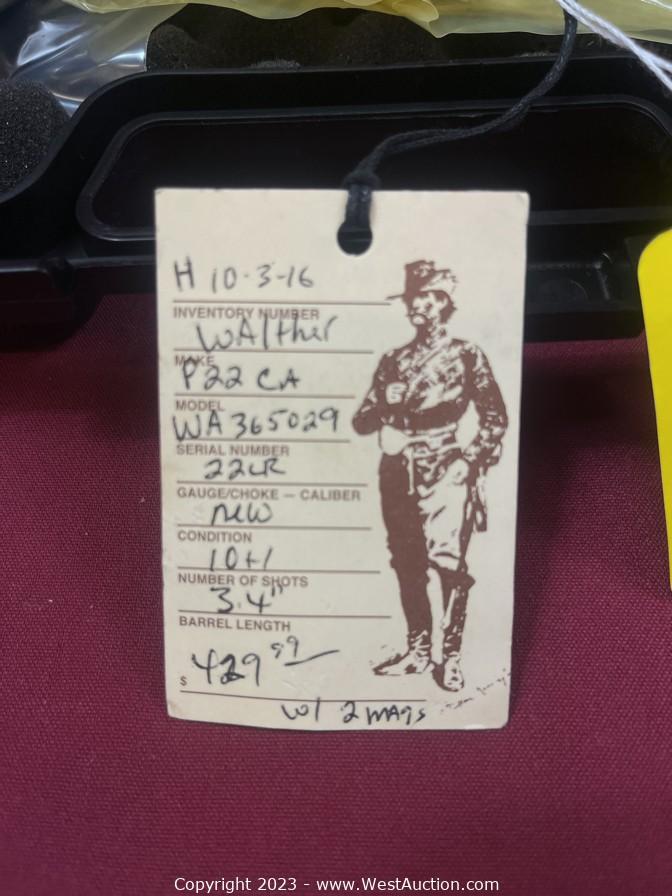 H 10-3-16
INVENTORY NUMBER
WAlther
MAKE
P22 CA
MODEL
WA365029
SERIAL NUMBER
22LR
GAUGE/CHOKE — CALIBER
new
CONDITION
10+1
NUMBER OF SHOTS
3.4"
BARREL LENGTH
$ 429 99
w/ 2 MAgs
Copyright 2023 - www.WestAuction.com